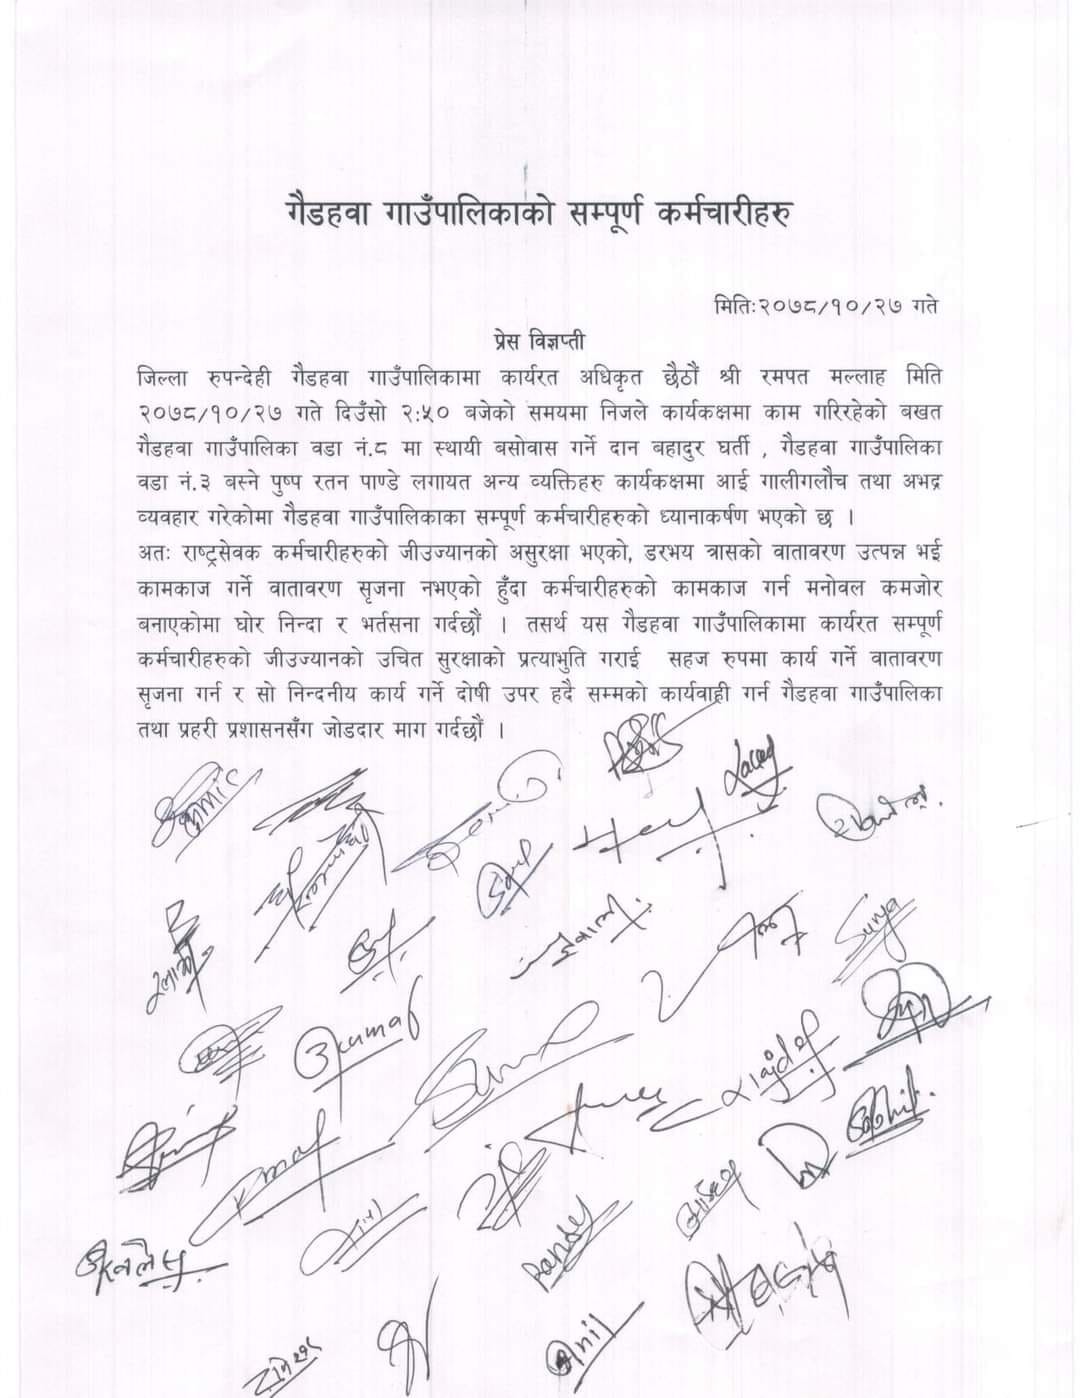 गैडहवा गाउँपालिकाको सम्पूर्ण कर्मचारीहरु
मितिः२०७८/१०/२७ गते
प्रेस विज्ञप्ती
जिल्ला रुपन्देही गैडहवा गाउँपालिकामा कार्यरत अधिकृत छैठौं श्री रमपत मल्लाह मिति
२०७८/१०/२७ गते दिउँसो २:५० बजेको समयमा निजले कार्यकक्षमा काम गरिरहेको बखत
गैडहवा गाउँपालिका वडा नं.८ मा स्थायी बसोवास गर्ने दान बहादुर घर्ती , गैडहवा गाउँपालिका
वडा नं.३ बस्ने पुष्प रतन पाण्डे लगायत अन्य व्यक्तिहरु कार्यकक्षमा आई गालीगलौच तथा अभद्र
व्यवहार गरेकोमा गैडहवा गाउँपालिकाका सम्पूर्ण कर्मचारीहरुको ध्यानाकर्षण भएको छ ।
अतः राष्ट्रसेवक कर्मचारीहरुको जीउज्यानको असुरक्षा भएको, डरभय त्रासको वातावरण उत्पन्न भई
कामकाज गर्ने वातावरण सृजना नभएको हुँदा कर्मचारीहरुको कामकाज गर्न मनोवल कमजोर
बनाएकोमा घोर निन्दा र भर्तसना गर्दछौं । तसर्थ यस गैडहवा गाउँपालिकामा कार्यरत सम्पूर्ण
कर्मचारीहरुको जीउज्यानको उचित सुरक्षाको प्रत्याभुति गराई सहज रुपमा कार्य गर्ने वातावरण
सृजना गर्न र सो निन्दनीय कार्य गर्ने दोषी उपर हदै सम्मको कार्यवाही गर्न गैडहवा गाउँपालिका
तथा प्रहरी प्रशासनसँग जोडदार माग गर्दछौं ।
Surya
Pandey
Anil